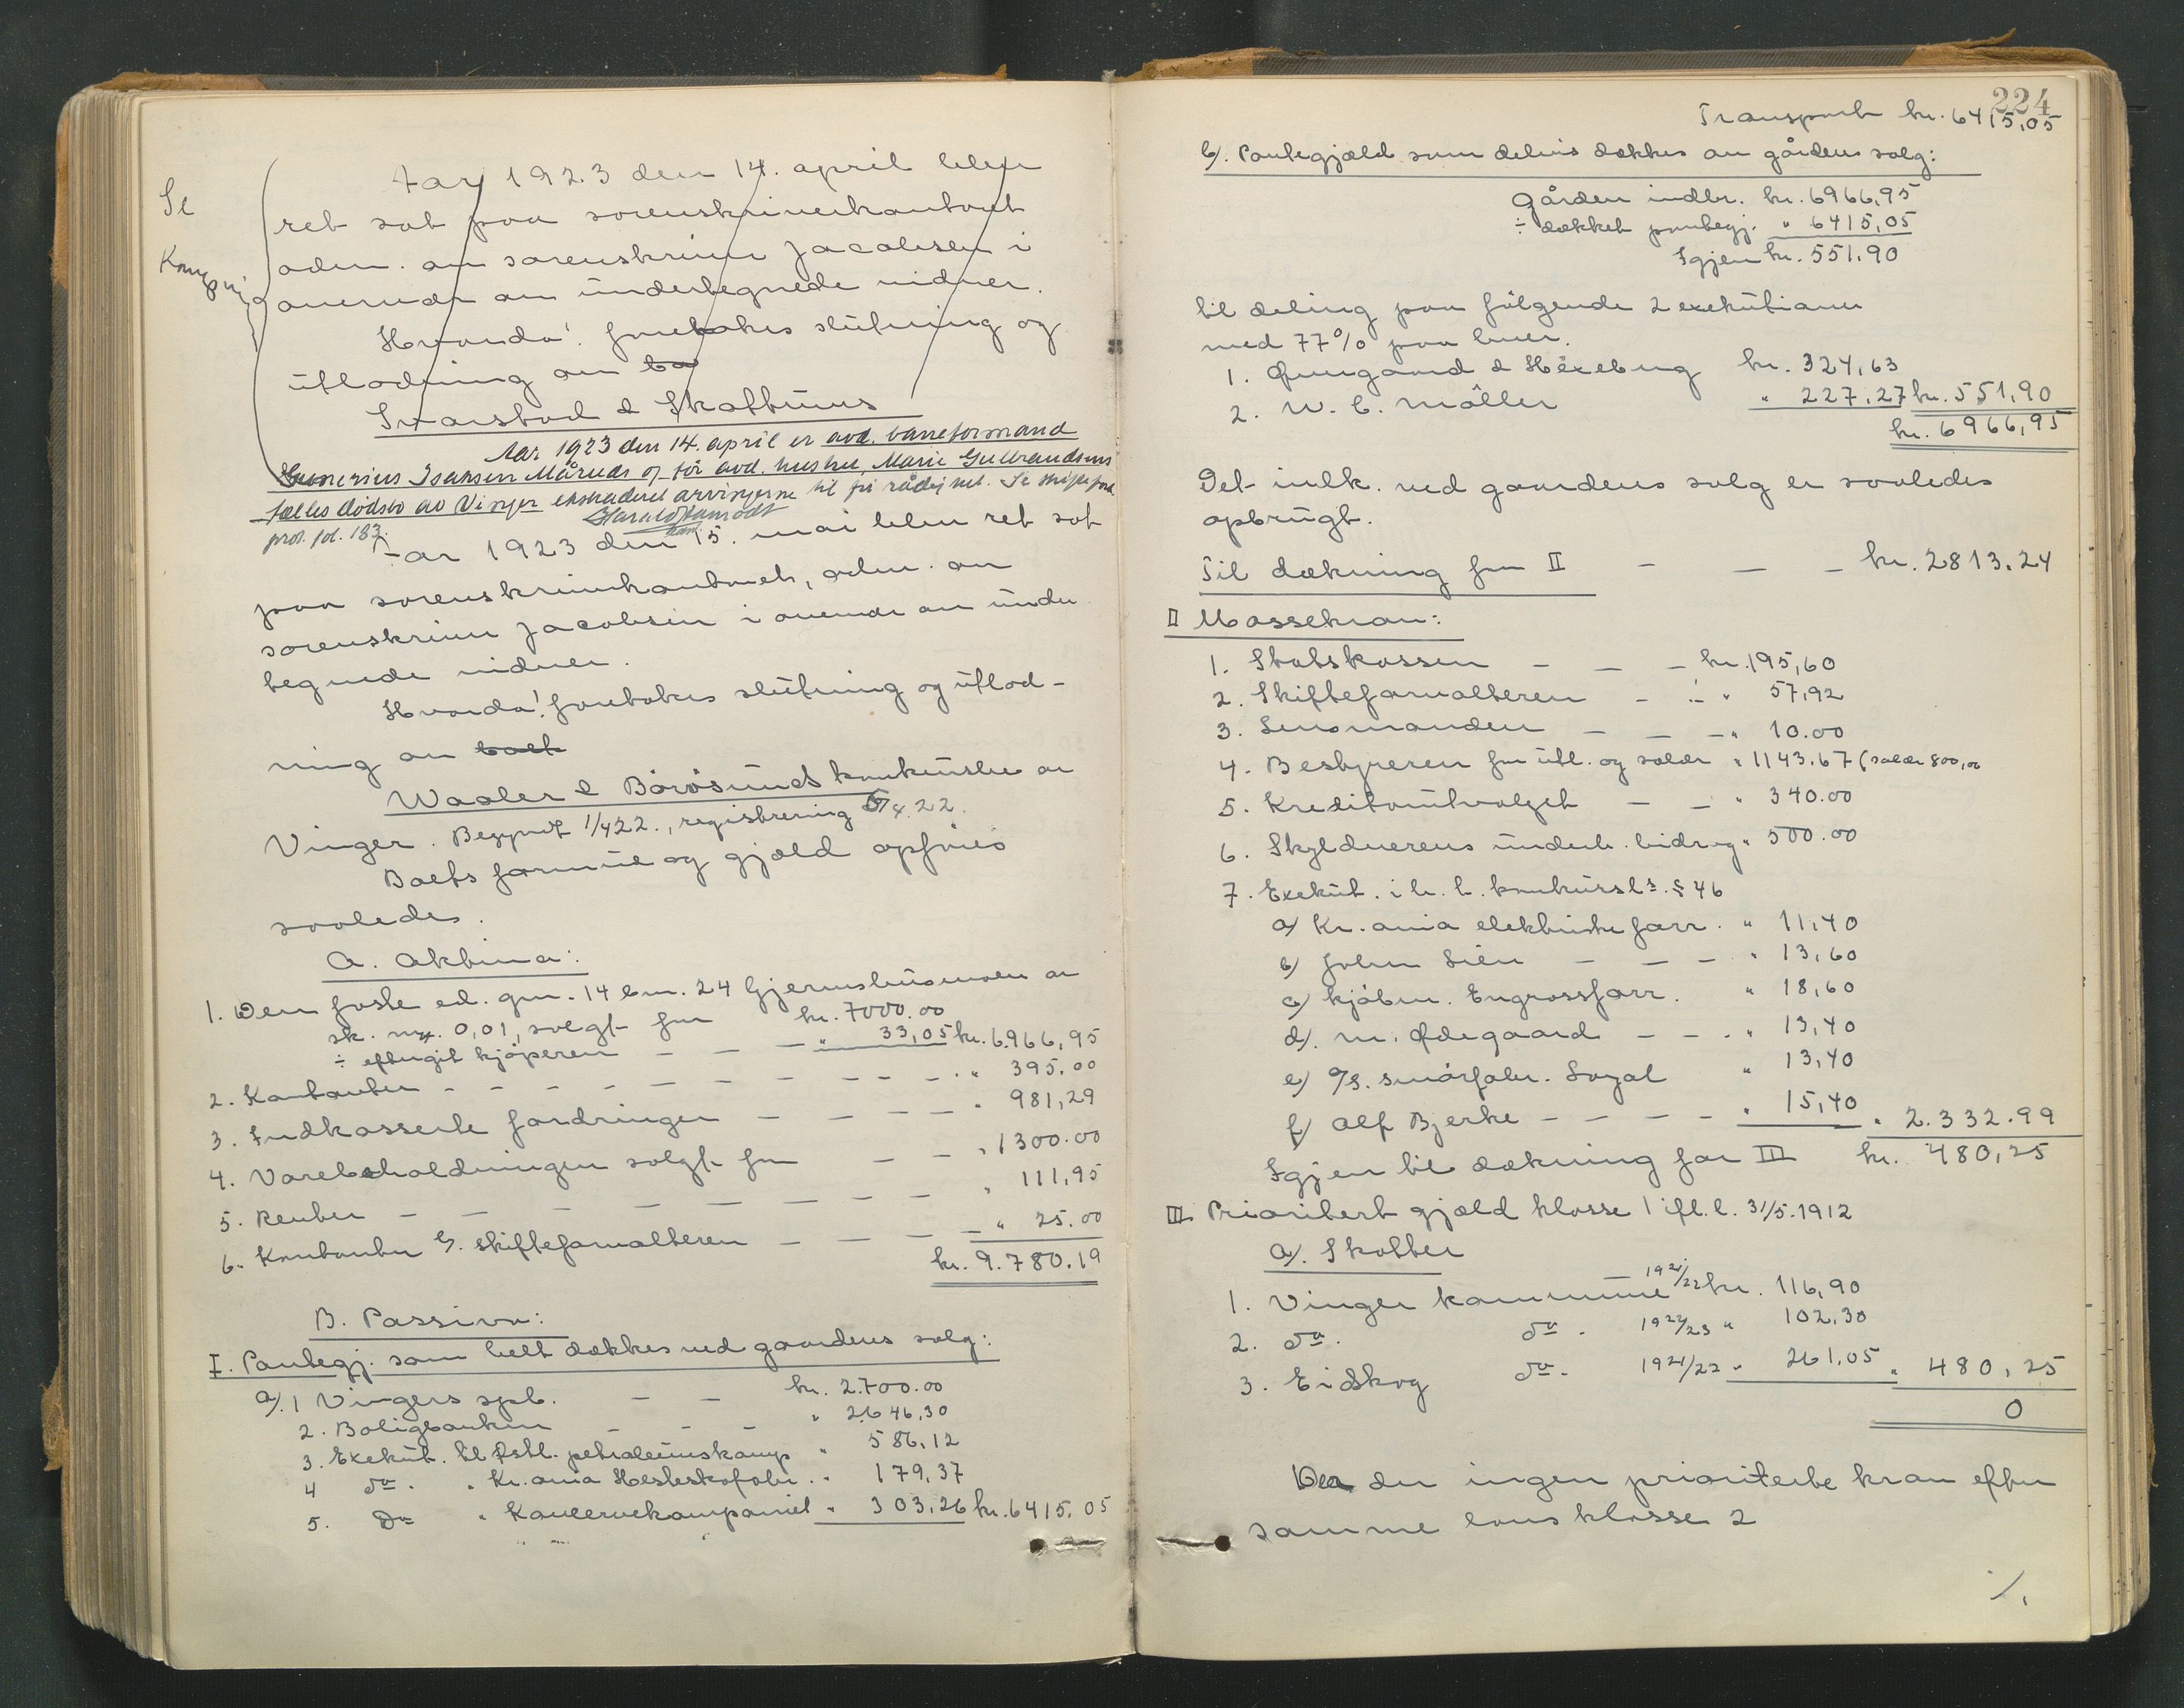 Se
Kongsvinger
Aar 1923 den 14. april blev
ret sat paa sorenskriverkontoret
adm. av sorenskriver Jacobsen i
overvær av undertegnede vidner.
Hvorda! foretokes slutning og
utlodning av bo
Svarstad & Skattums
Aar 1923 den 14. april er avd. baneformand
Gunerius Isaksen Måruds og før avd. hustru, Marie Gulbrandsens
fælles dødsbo av Vinger ekstraderet arvingerne til fri rådighet. Se skiftefork.
prot. fol. 183.
Harald Aamodt
Aar 1923 den 15. mai blev ret sat
paa sorenskriverkontoret, adm. av
sorenskriver Jacobsen i overvær av under
tegnede vidner.
Hvorda! foretokes slutning og utlod-
ning av boet
Waaler & Börösunds konkursbo av
Vinger. Begyndt 1/4 22., registrering 5/4. 22.
Boets formue og gjæld opføres
saaledes.
A. Aktiva:
1. Den faste ed. gnr. 14 bnr. 24 Gjermshusmoen av
sk. mrk. 0,01, solgt for kr. 7000.00
÷ eftergit kjøperen — — — " 33,05 kr. 6.966,95
2. Kontanter — — — — — — — — " 395.00
3. Indkasserte fordringer — — — — " 981,29
4. Varebeholdningen solgt for — — " 1300.00
5. Renter — — — — — — — " 111,95
6. Kontanter hos skifteforvalteren — — — " 25.00
kr. 9.780.19
B. Passiva:
I. Pantegj. som helt dækkes ved gaardens salg:
a/. 1 Vingers spb. — — kr. 2.700.00
2. Boligbanken — — — " 2646,30
3. Exekut. til Østl. petroleumskomp " 586,12
4 do. " Kr.ania Hesteskofabr. " 179,37
5. Do " Konservekompaniet " 303,26 kr. 6415.05
224
Transport kr. 6415,05
b/. Pantegjæld som delvis dækkes av gårdens salg:
Gården indbr. kr. 6966,95
÷ dækket pantegj. " 6415,05
Igjen kr. 551.90
til deling paa følgende 2 exekutioner
med 77% paa hver.
1. Øvergaard & Hexeberg kr. 324,63
2. W. C. Möller " 227.27 kr. 551,90
kr. 6966,95
Det indk. ved gaardens salg er saaledes
opbrugt.
Til dækning for II — — — kr. 2813.24
II Massekrav:
1. Statskassen — — — kr. 195,60
2. Skifteforvalteren — — " 57,92
3. Lensmanden — — — " 10.00
4. Bestyreren for utl. og salær " 1143.67 (salær 800,00
5. Kreditorutvalget — — " 340.00
6. Skyldnerens underh. bidrag " 500.00
7. Exekut. i h. t. konkursl.s § 46
a/ Kr.ania elektriske forr. " 11,40
b/ John Lien — — — " 13,60
c/ Kjöbm. Engrossforr. " 18,60
d/. M. Ødegaard — — " 13,40
e/ A/S. Smörfabr. Loyal " 13,40
f/ Alf Bjerke — — — — " 15,40 " 2.332.99
Igjen til dækning for III kr. 480,25
III. Prioritert gjæld klasse 1 ifl. l. 31/5. 1912
a/. Skatter
1. Vinger kommune 1921/22 kr. 116,90
2. do. do. 1922/23 " 102,30
3. Eidskog do. 1921/22 " 261.05 " 480,25
0
Da der ingen prioriterte krav efter
samme lovs klasse 2
./.